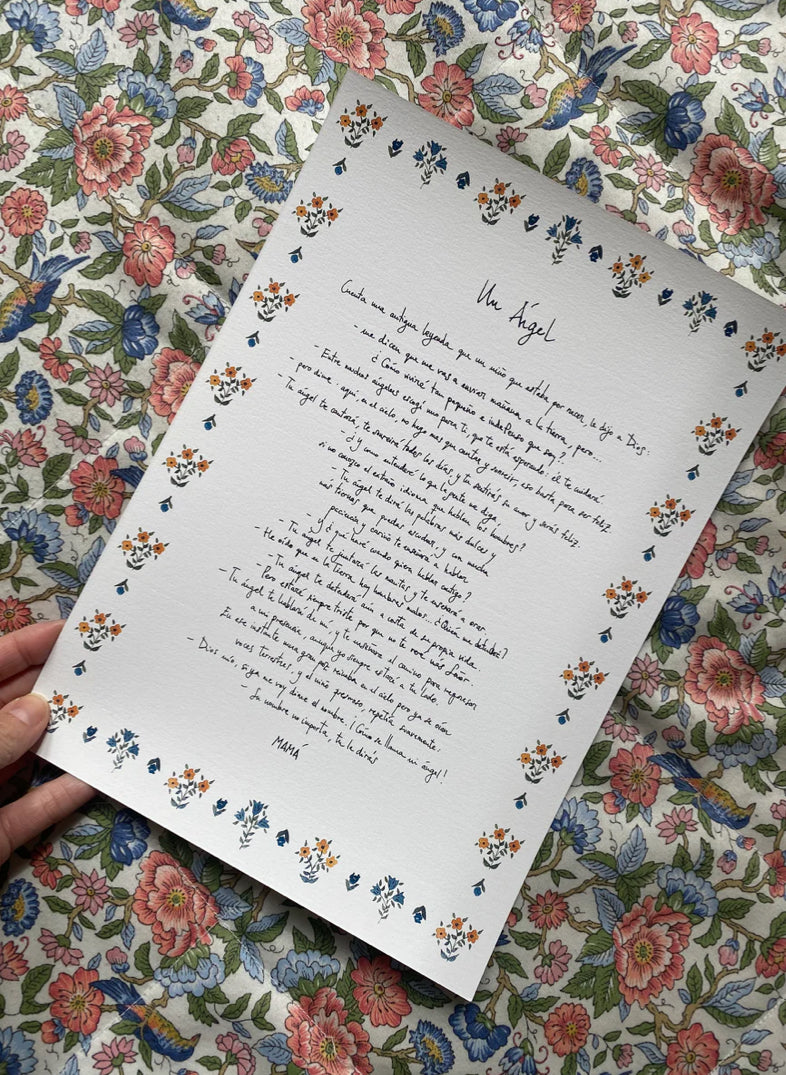 Un Ángel
Cuenta una antigua leyenda que un niño que estaba por nacer, le dijo a Dios:
- me dicen que me vas a enviar mañana a la tierra, pero...
¿Como viviré tan pequeño e indefenso que soy??
- Entre muchos ángeles escogí uno para ti, que te está esperando: él te cuidará.
- pero dime: aquí en el cielo, no hago mas que cantar y sonreir, eso basta para ser feliz.
- Tu ángel te cantará, te sonreirá todos los días, y tu sentirás su amor y serás feliz.
- ¿Y como entenderé lo que la gente me diga,
si no conozco el extraño idioma que hablan los hombres?
- Tu ángel te dirá las palabras más dulces y
más tiernas que puedas escuchar, y con mucha
paciencia y cariño te enseñará a hablar
Y ¿qué haré cuando quiera hablar contigo?
- Tu angel te juntará las manitas y te enseñará a orar
- He oído que en la tierra hay hombres malos... ¿Quién me defenderá?
- Tu ángel te defenderá aún a costa de su propia vida.
- Pero estaré siempre triste por que no te veré más Señor.
- Tu ángel te hablará de mí, y te enseñará el camino para regresar
a mi presencia, aunque yo siempre estaré a tu lado.
En ese instante una gran paz reinaba en el cielo pero ya se oían
voces terrestres. y el niño presuroso, repetía suavemente:
- Dios mío, si ya me voy dime el nombre. ¡Como se llama mi ángel!
- Su nombre no importa, tu le dirás
MAMÁ